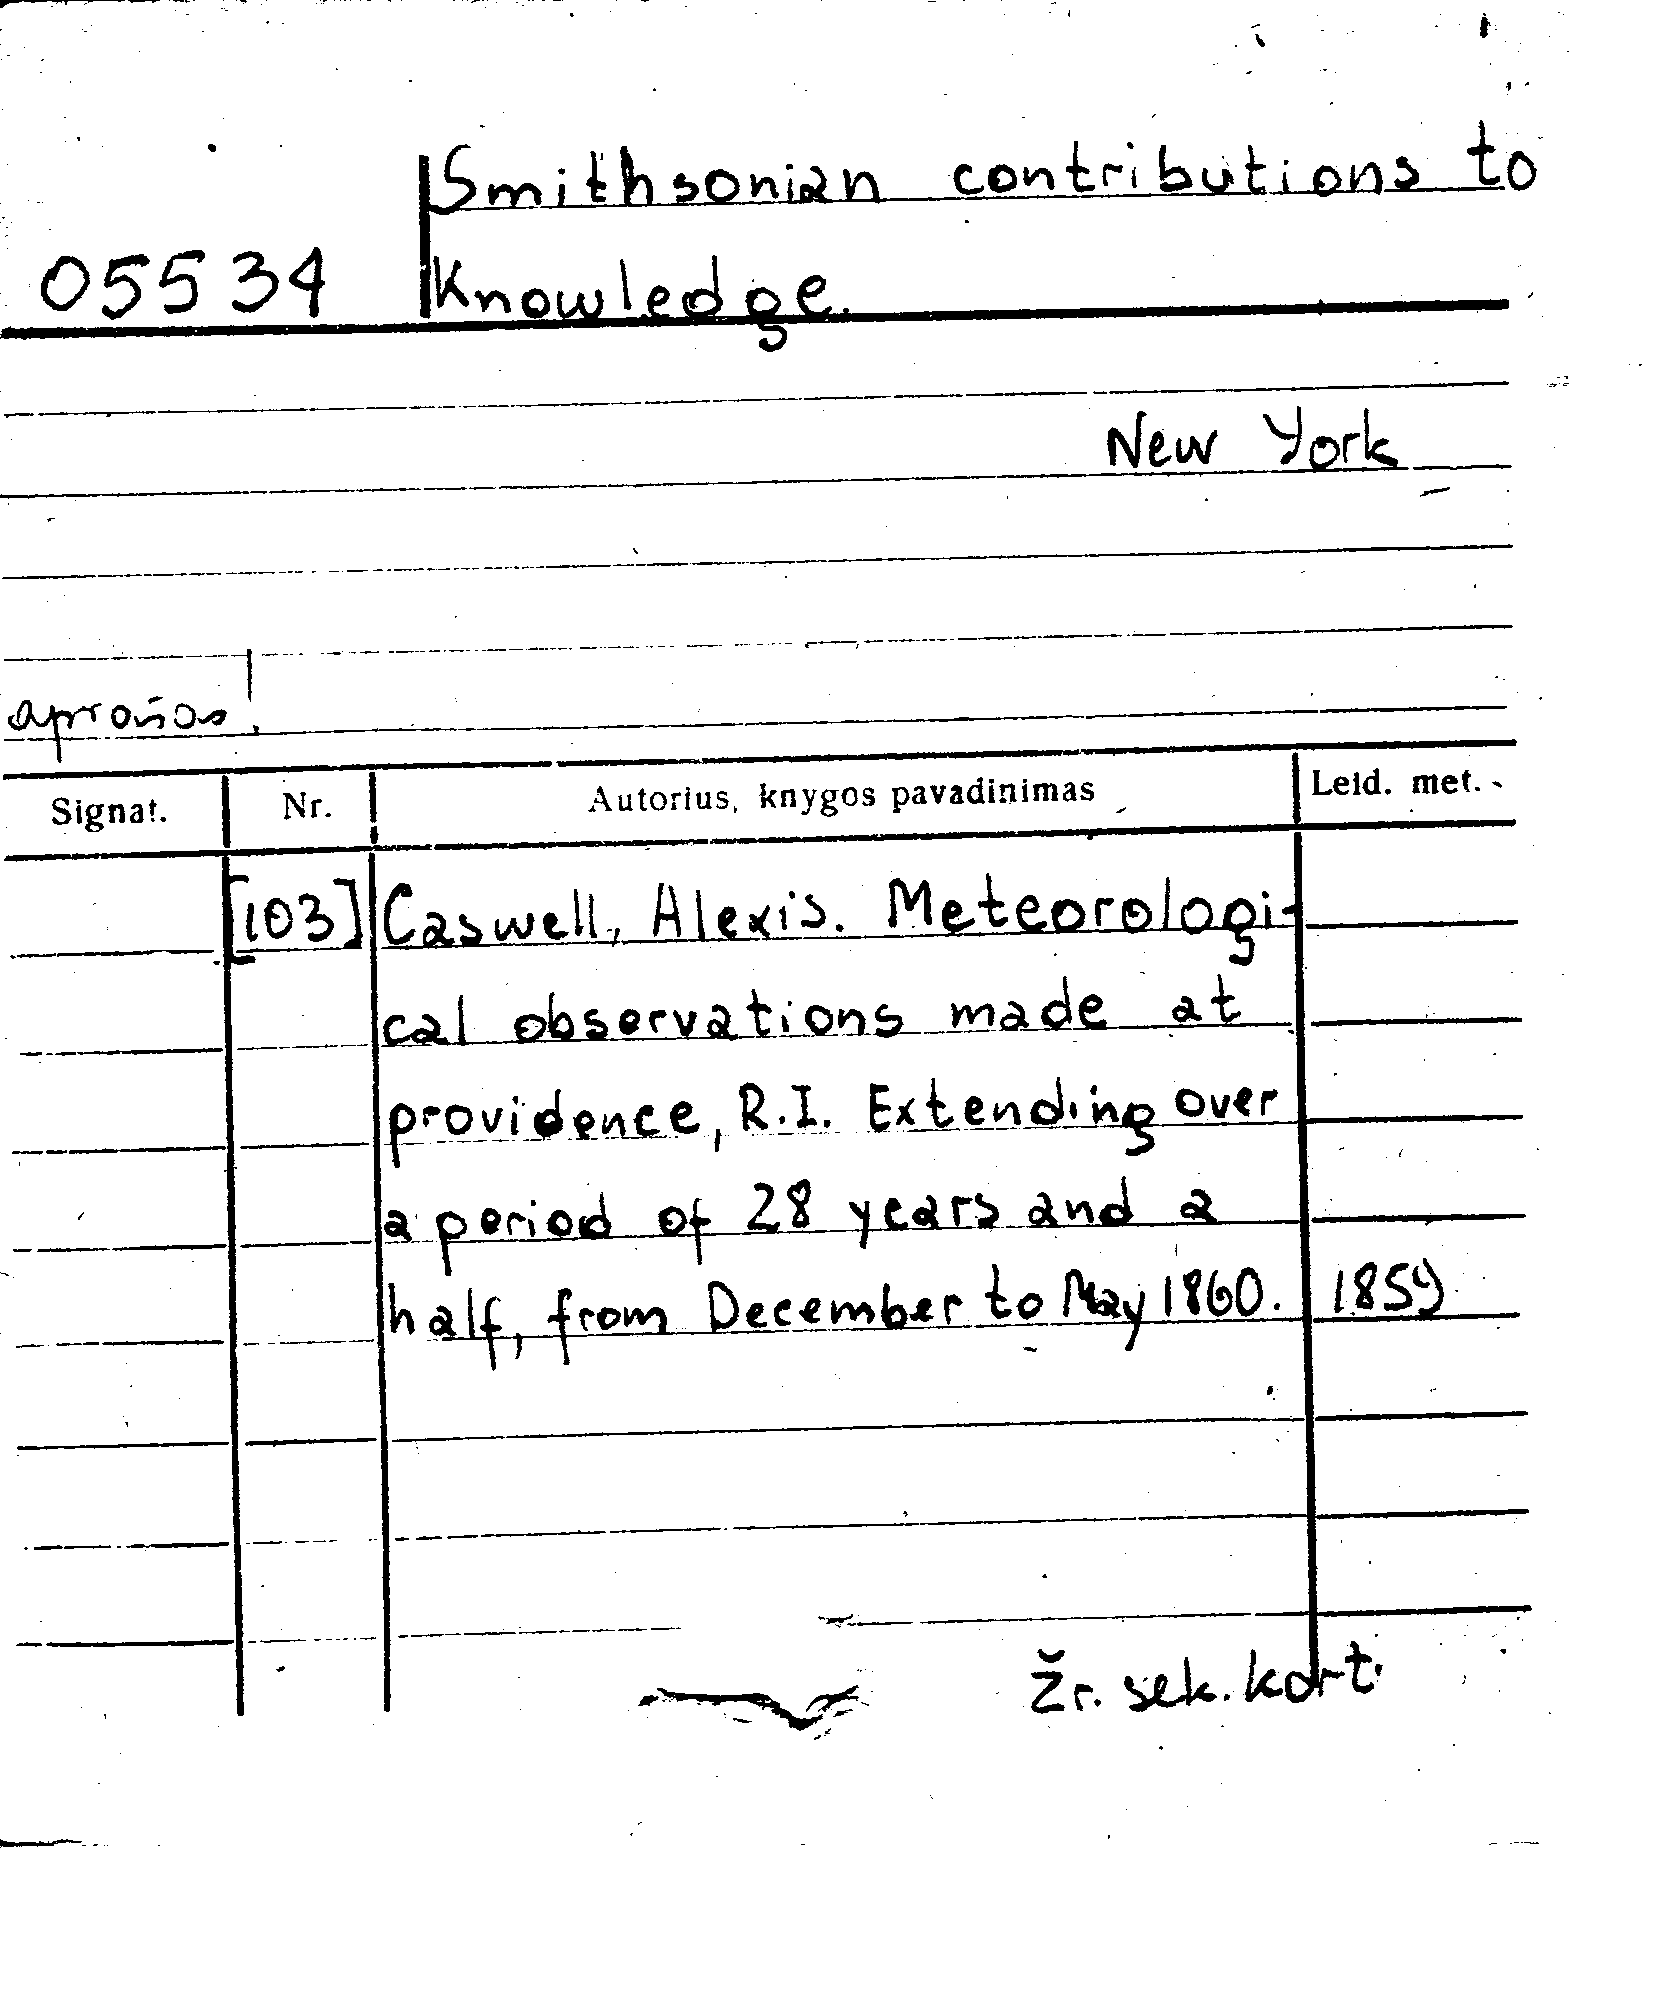 Smithsonian contributions to
05534 Knowledge.
New York
Signat. Nr. Autorius, knygos pavadinimas Leid. met.
[103] Caswell, Alexis. Meteorologi-
cal observations made at
providence, R.I. Extending over
a period of 28 years and a
half, from December to May 1860. 1859
Žr. sek. kort.